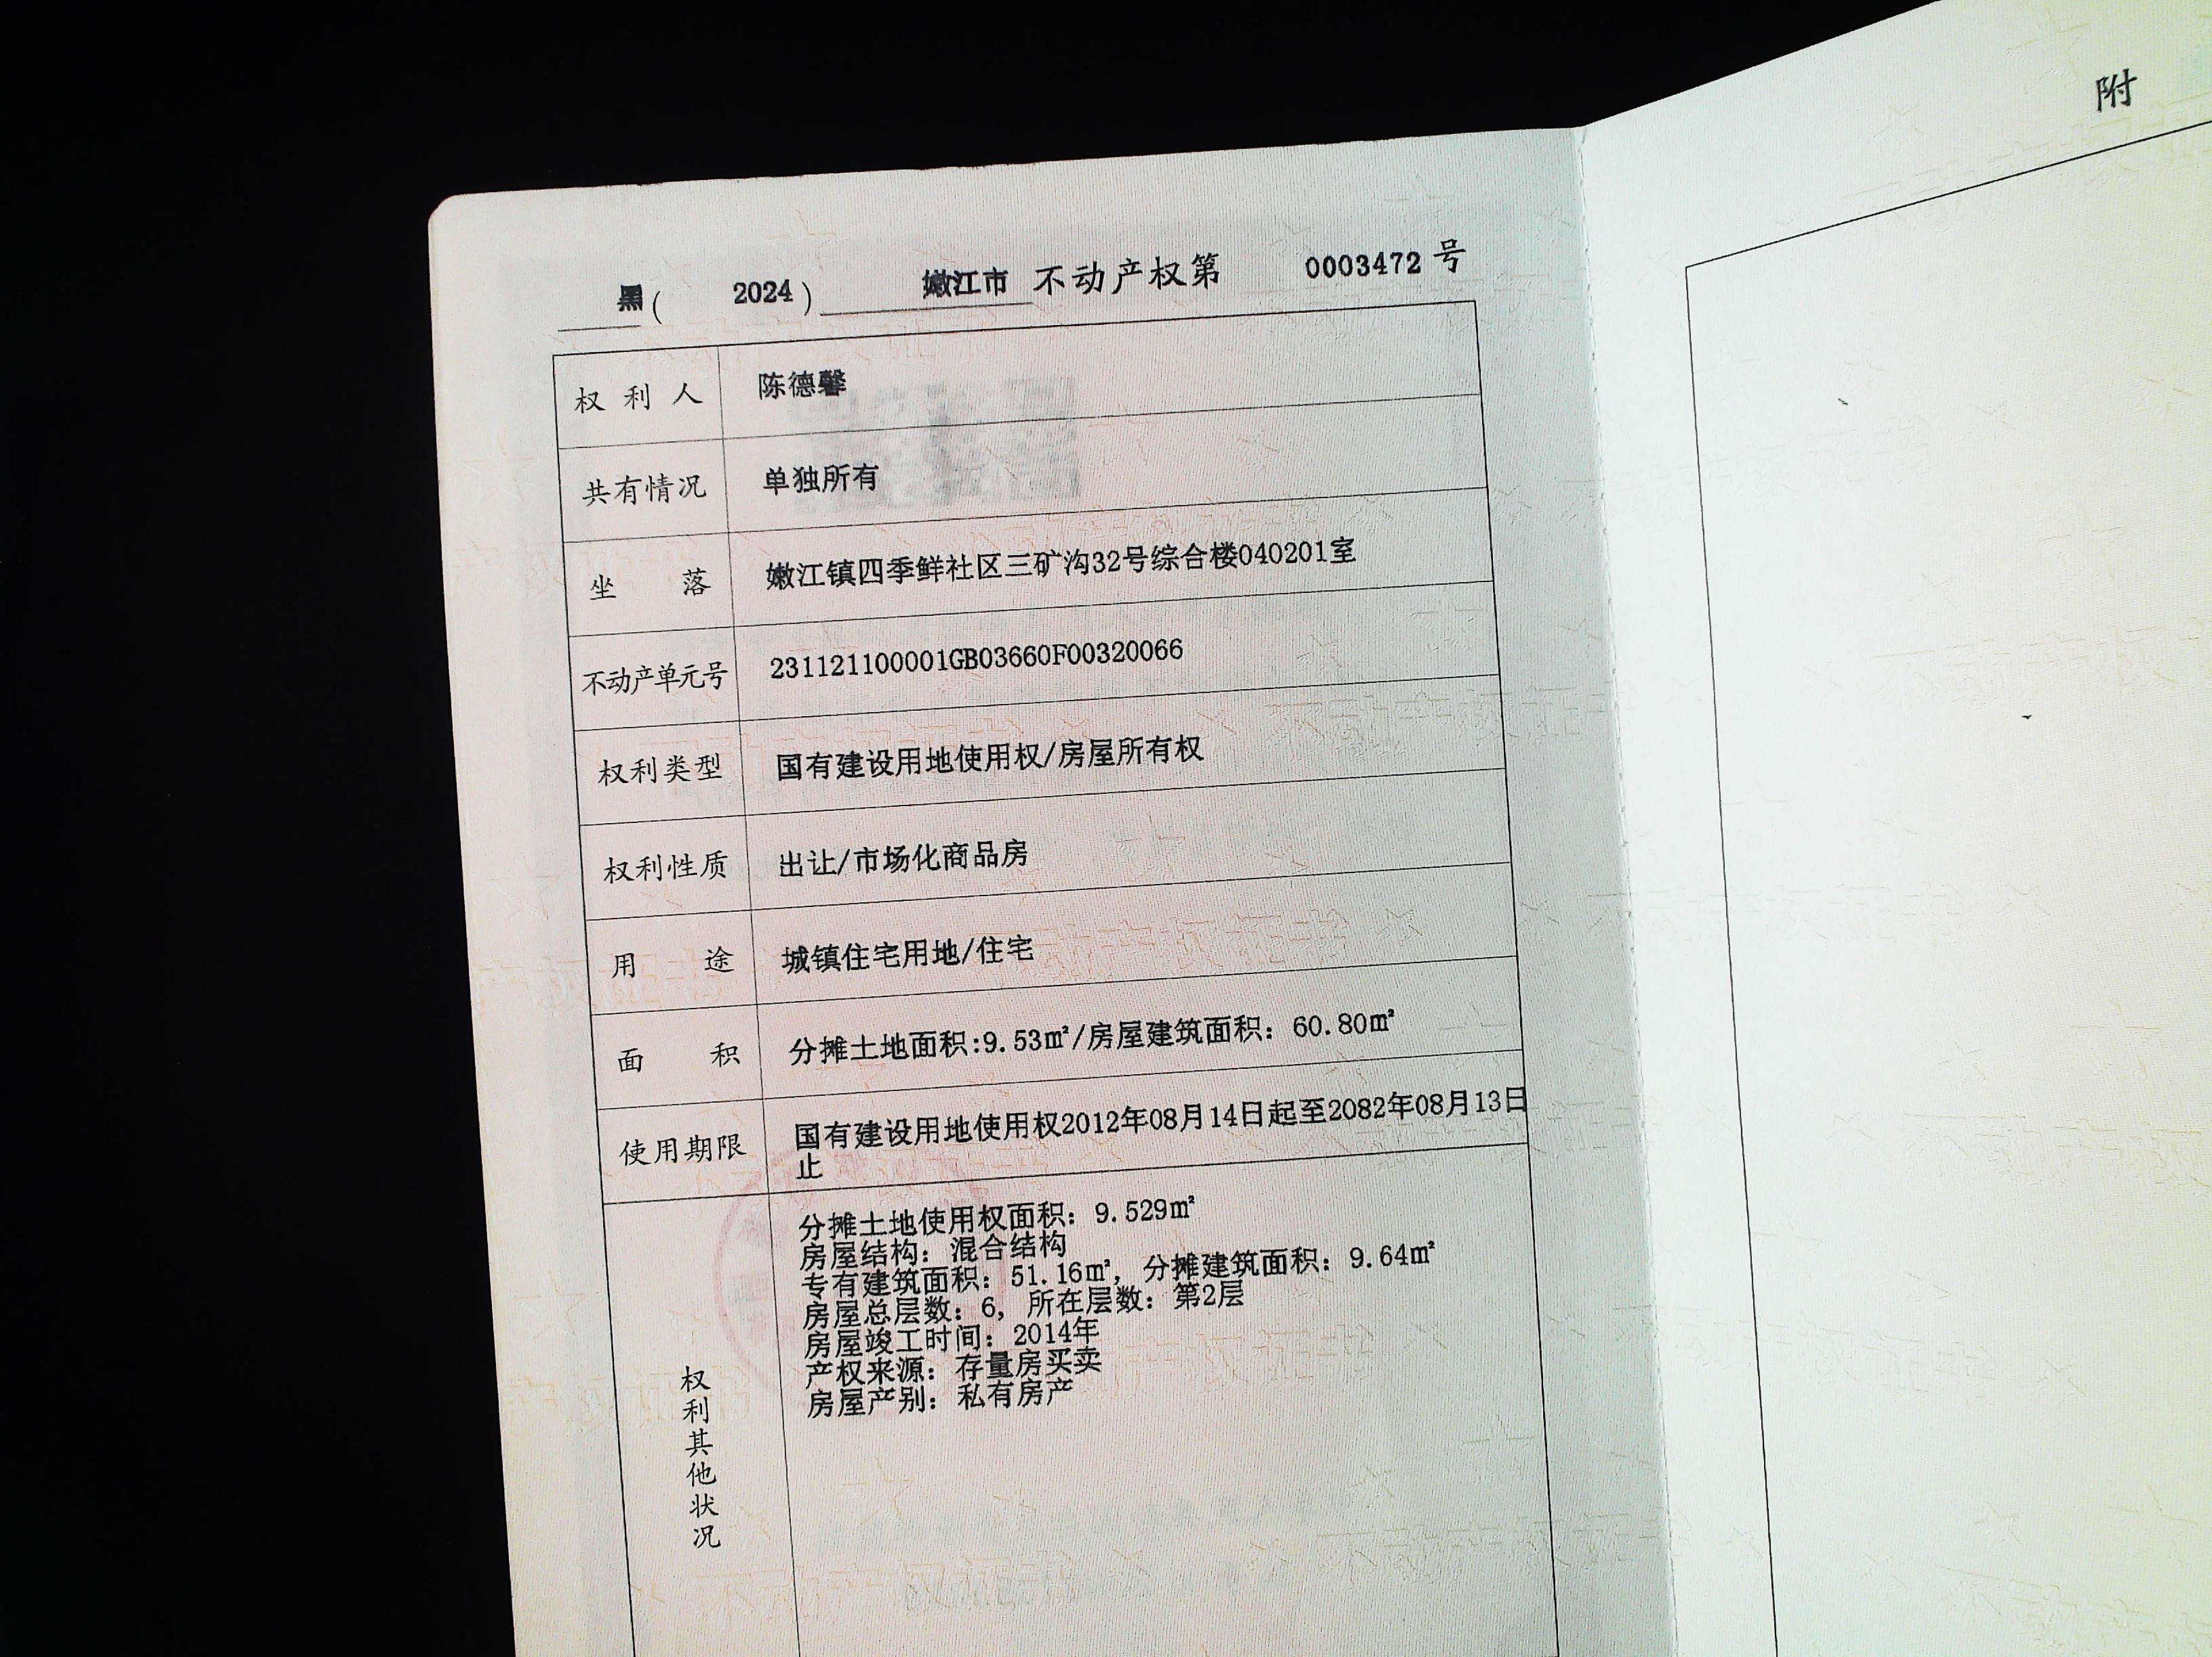 黑（ 2024 ） 嫩江市 不动产权第 0003472 号
权利人 陈德馨
共有情况 单独所有
坐落 嫩江镇四季鲜社区三矿沟32号综合楼040201室
不动产单元号 231121100001GB03660F00320066
权利类型 国有建设用地使用权/房屋所有权
权利性质 出让/市场化商品房
用途 城镇住宅用地/住宅
面积 分摊土地面积:9.53㎡/房屋建筑面积：60.80㎡
使用期限 国有建设用地使用权2012年08月14日起至2082年08月13日
止
权利其他状况
分摊土地使用权面积：9.529㎡
房屋结构：混合结构
专有建筑面积：51.16㎡，分摊建筑面积：9.64㎡
房屋总层数：6，所在层数：第2层
房屋竣工时间：2014年
产权来源：存量房买卖
房屋产别：私有房产
附